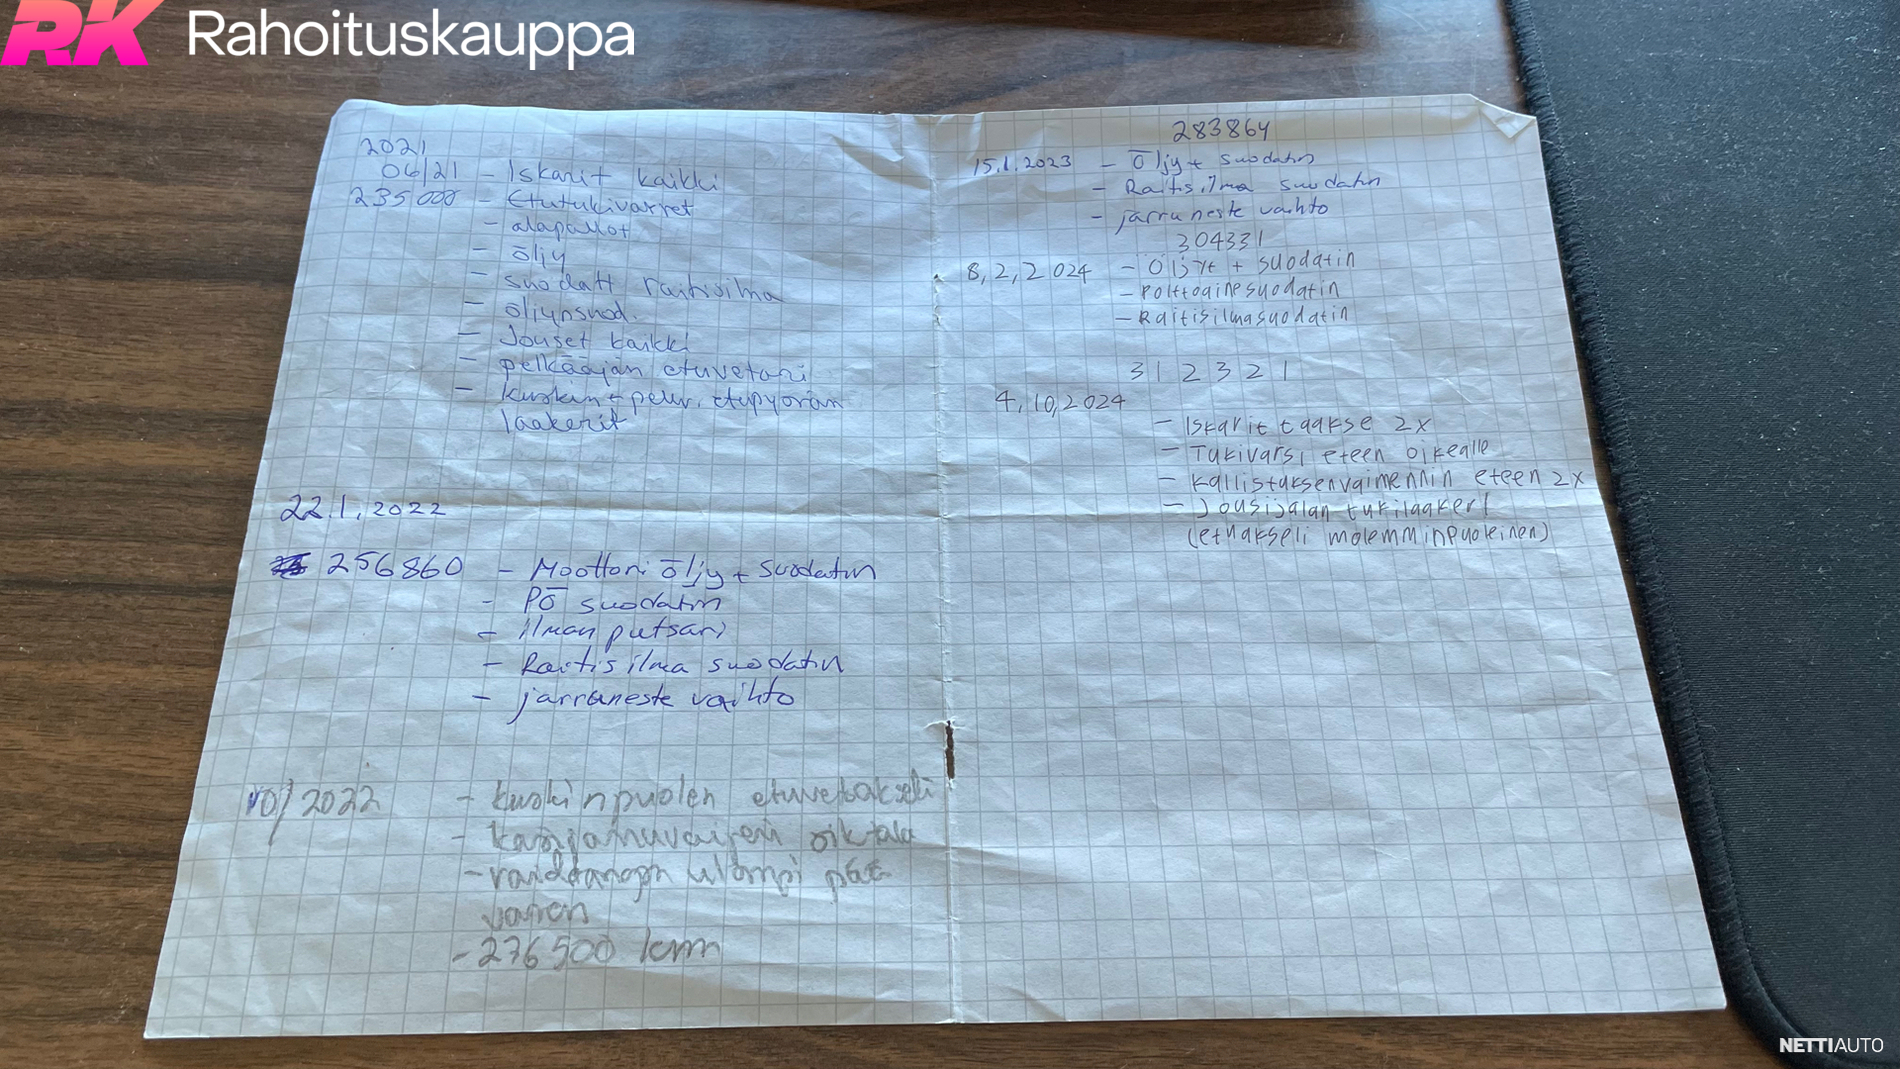 RK Rahoituskauppa
2021
06/21 - Iskarit kaikki
235000 - Etutukivarret
- alapallot
- öljy
- suodatt raitisilma
- öljynsuod.
- Jouset kaikki
- pelkääjän etuvetari
- kuskin + pelk. etupyörän
laakerit
22.1.2022
256860 - Moottori öljy + suodatin
- PÖ suodatin
- ilman putsari
- Raitis ilma suodatin
- jarruneste vaihto
10/2022 - kuskinpuolen etuvetoakseli
oik taka
- ulompi
- 276500 km
283864
15.1.2023 - Öljy + suodatin
- Raitis ilma suodatin
- jarruneste vaihto
304331
8,2,2024 - Öljyt + suodatin
- Polttoainesuodatin
- Raitisilmasuodatin
312321
4,10,2024
- Iskarit taakse 2x
- Tukivarsi eteen oikealle
- Kallistaksenvaimennin eteen 2x
- Jousijalan tukilaakeri
(etuakseli molemminpuoleinen)
NETTIAUTO